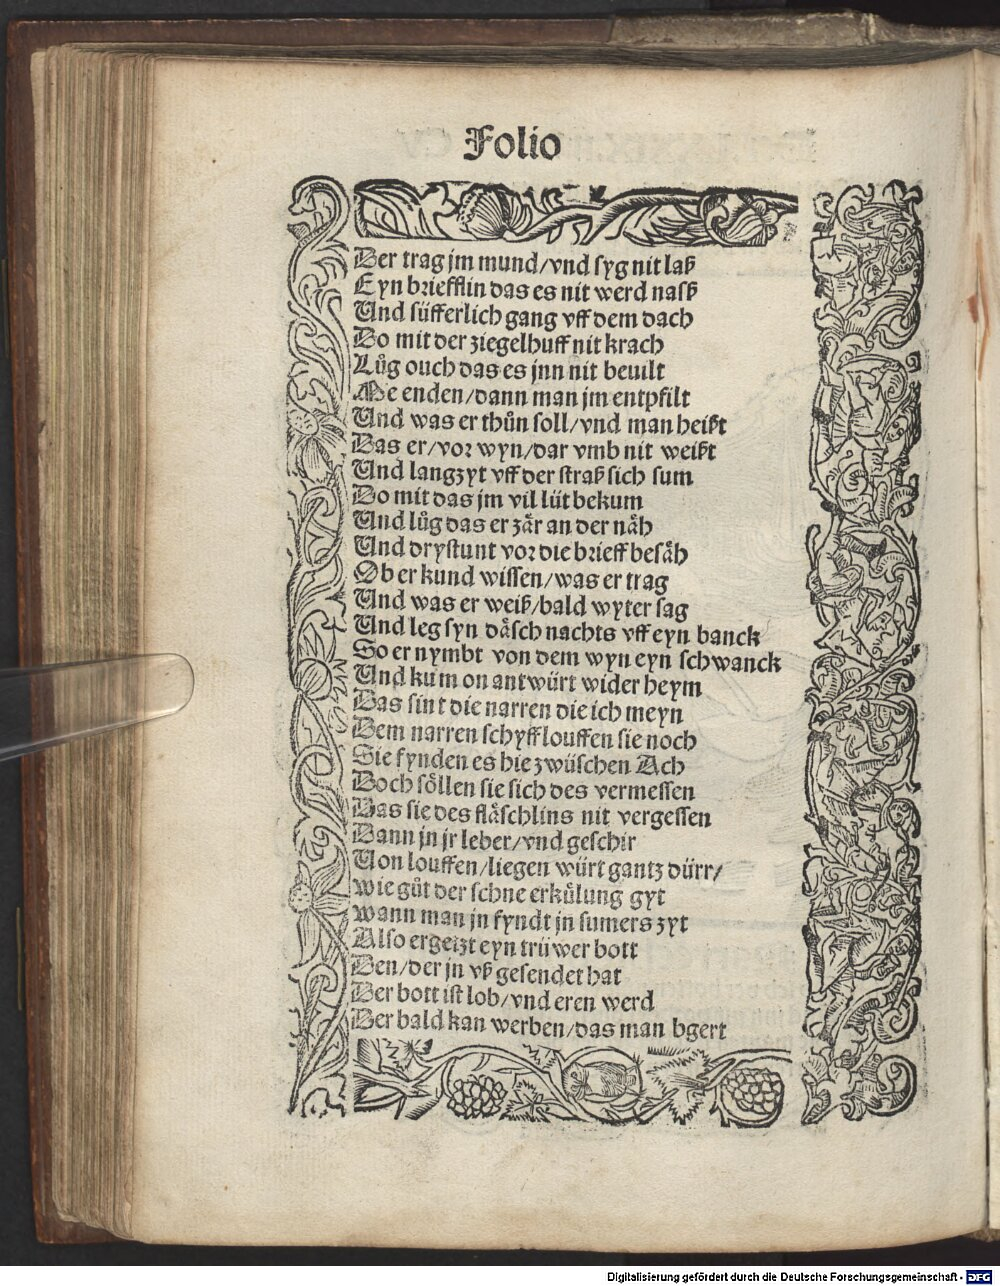 Folio
Der trag jm mund/vnd syg nit laß
Eyn briefflin das es nit werd nasß
Und süfferlich gang vff dem dach
Do mit der ziegelhuff nit krach
Lůg ouch das es jnn nit beuilt
Me enden/dann man jm entpfilt
Und was er thůn soll/vnd man heißt
Das er/vor wyn/dar vmb nit weißt
Und langzyt vff der straß sich sum
Do mit das jm vil lüt bekum
Und lůg das er zår an der nåh
Und drystunt vor die brieff besåh
Ob er kund wissen/was er trag
Und was er weiß/bald wyter sag
Und leg syn dåsch nachts vff eyn banck
So er nymbt von dem wyn eyn schwanck
Und kum on antwürt wider heym
Das sint die narren die ich meyn
Dem narren schyff louffen sie noch
Sie fynden es hie zwüschen Ach
Doch söllen sie sich des vermessen
Das sie des fläschlins nit vergessen
Dann jn jr leber/vnd geschir
Von louffen/liegen würt gantz dürr/
wie gůt der schne erkůlung gyt
wann man jn fyndt jn sumers zyt
Also ergetzt eyn trüwer bott
Den/der jn vß gesendet hat
Der bott ist lob/vnd eren werd
Der bald kan werben/das man bgert
Digitalisierung gefördert durch die Deutsche Forschungsgemeinschaft - DFG